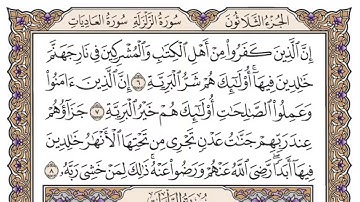 الجزء الثلاثون سورة الزلزلة سورة العاديات
إِنَّ الَّذِينَ كَفَرُوا مِنْ أَهْلِ الْكِتَابِ وَالْمُشْرِكِينَ فِي نَارِ جَهَنَّمَ
خَالِدِينَ فِيهَا أُولَٰئِكَ هُمْ شَرُّ الْبَرِيَّةِ ٦ إِنَّ الَّذِينَ ءَامَنُوا
وَعَمِلُوا الصَّالِحَاتِ أُولَٰئِكَ هُمْ خَيْرُ الْبَرِيَّةِ ٧ جَزَاؤُهُمْ
عِندَ رَبِّهِمْ جَنَّاتُ عَدْنٍ تَجْرِي مِن تَحْتِهَا الْأَنْهَارُ خَالِدِينَ
فِيهَا أَبَدًا رَّضِيَ اللَّهُ عَنْهُمْ وَرَضُوا عَنْهُ ذَٰلِكَ لِمَنْ خَشِيَ رَبَّهُ ٨